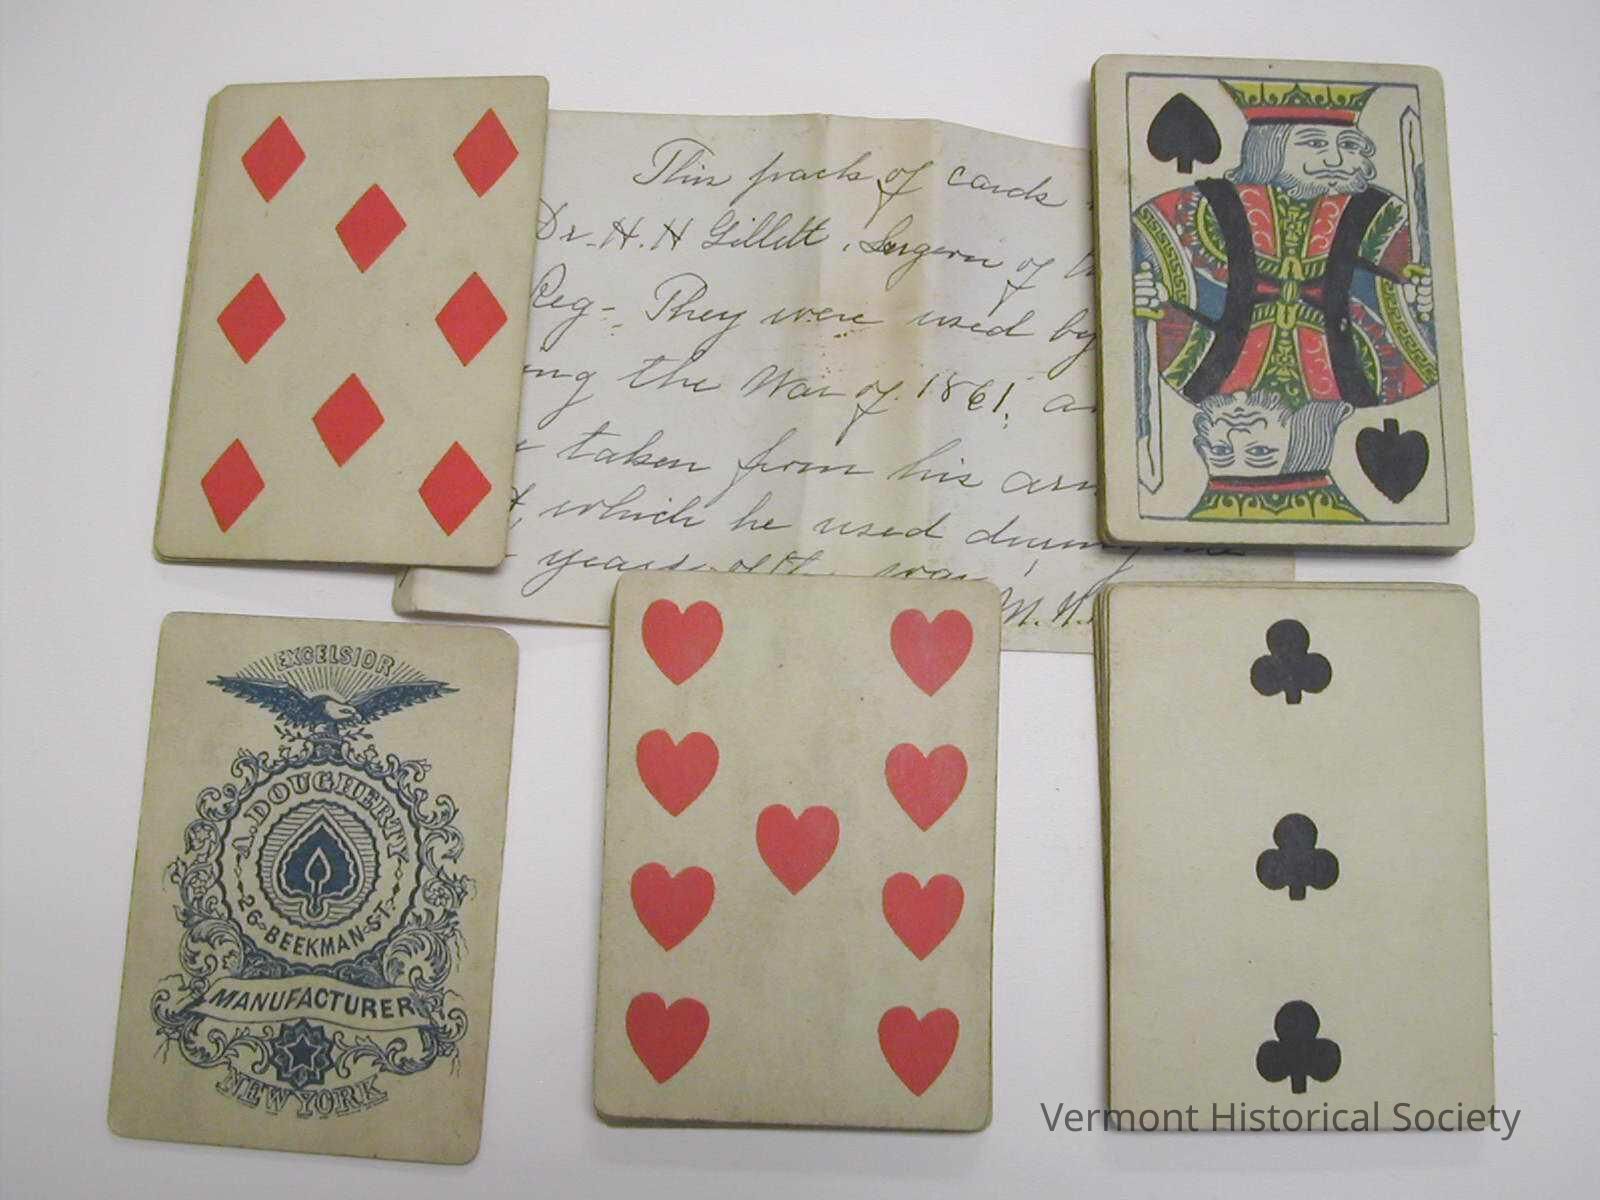 This pack of cards
Dr. H. H Gillett, Surgeon of
Reg- They were used by
ing the War of 1861,
taken from his
which he used during the
years of the war
M. H.
EXCELSIOR
A. DOUGHERTY
26 BEEKMAN ST.
MANUFACTURER
NEW YORK
Vermont Historical Society